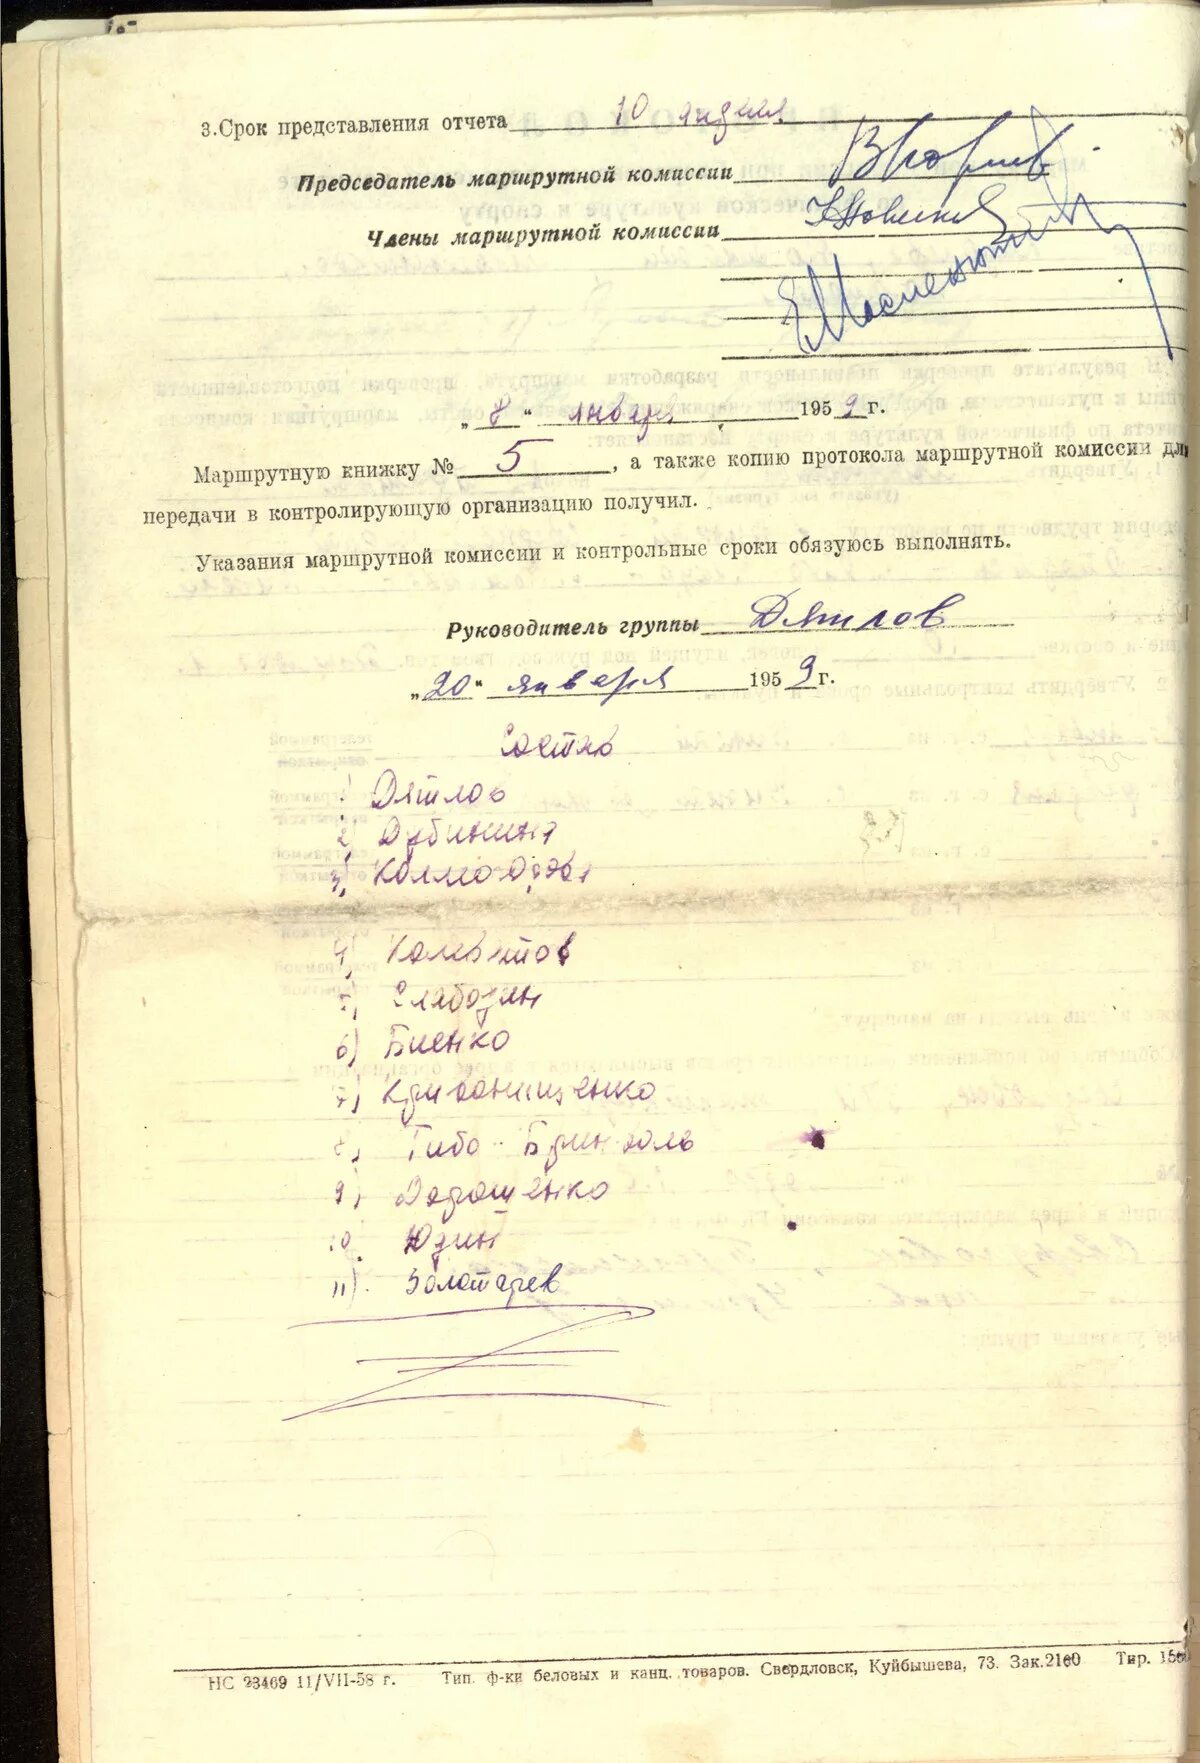 3. Срок представления отчета 10 апреля
Председатель маршрутной комиссии
Члены маршрутной комиссии
Е Масленников
„ 8 " января 1959 г.
Маршрутную книжку № 5 , а также копию протокола маршрутной комиссии для
передачи в контролирующую организацию получил.
Указания маршрутной комиссии и контрольные сроки обязуюсь выполнять.
Руководитель группы Дятлов
„20" января 1959 г.
Состав
1) Дятлов
2) Дубинина
3) Колмогорова
4) Колеватов
5) Слободин
6) Биенко
7) Кривонищенко
8) Тибо-Бриньоль
9) Дорошенко
10. Юдин
11). Золотарев
НС 23469 11/VII-58 г. Тип. ф-ки беловых и канц. товаров. Свердловск, Куйбышева, 73. Зак. 2160 Тир.